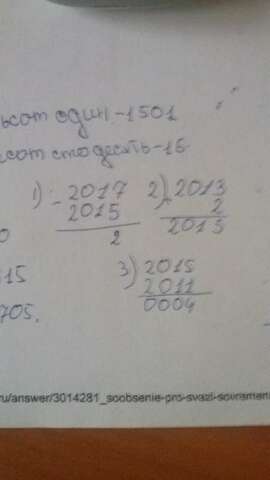 ьсот один.-1501
сот стодесять-15
1) - 2017 2) 2013
2015 2
2 2015
0
3) 2015
15 2011
705. 0004
ru/answer/3014281_soobsenie-pro-svazi-sovremen